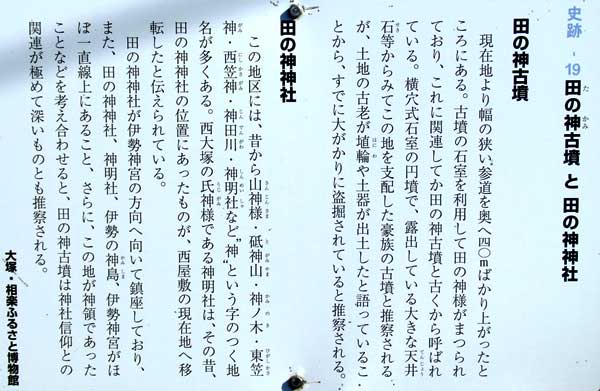 史跡-19 田の神古墳 と 田の神神社
田の神古墳
現在地より幅の狭い参道を奥へ四〇mばかり上がったと
ころにある。古墳の石室を利用して田の神様がまつられ
ており、これに関連してか田の神古墳と古くから呼ばれ
ている。横穴式石室の円墳で、露出している大きな天井
石等からみてこの地を支配した豪族の古墳と推察される
が、土地の古老が埴輪や土器が出土したと語っているこ
とから、すでに大がかりに盗掘されていると推察される。
田の神神社
この地区には、昔から山神様・砥神山・神ノ木・東笠
神・西笠神・神田川・神明社など“神”という字のつく地
名が多くある。西大塚の氏神様である神明社は、その昔、
田の神神社の位置にあったものが、西屋敷の現在地へ移
転したと伝えられている。
田の神神社が伊勢神宮の方向へ向いて鎮座しており、
また、田の神神社、神明社、伊勢の神島、伊勢神宮がほ
ぼ一直線上にあること、さらに、この地が神領であった
ことなどを考え合わせると、田の神古墳は神社信仰との
関連が極めて深いものとも推察される。
大塚・相楽ふるさと博物館